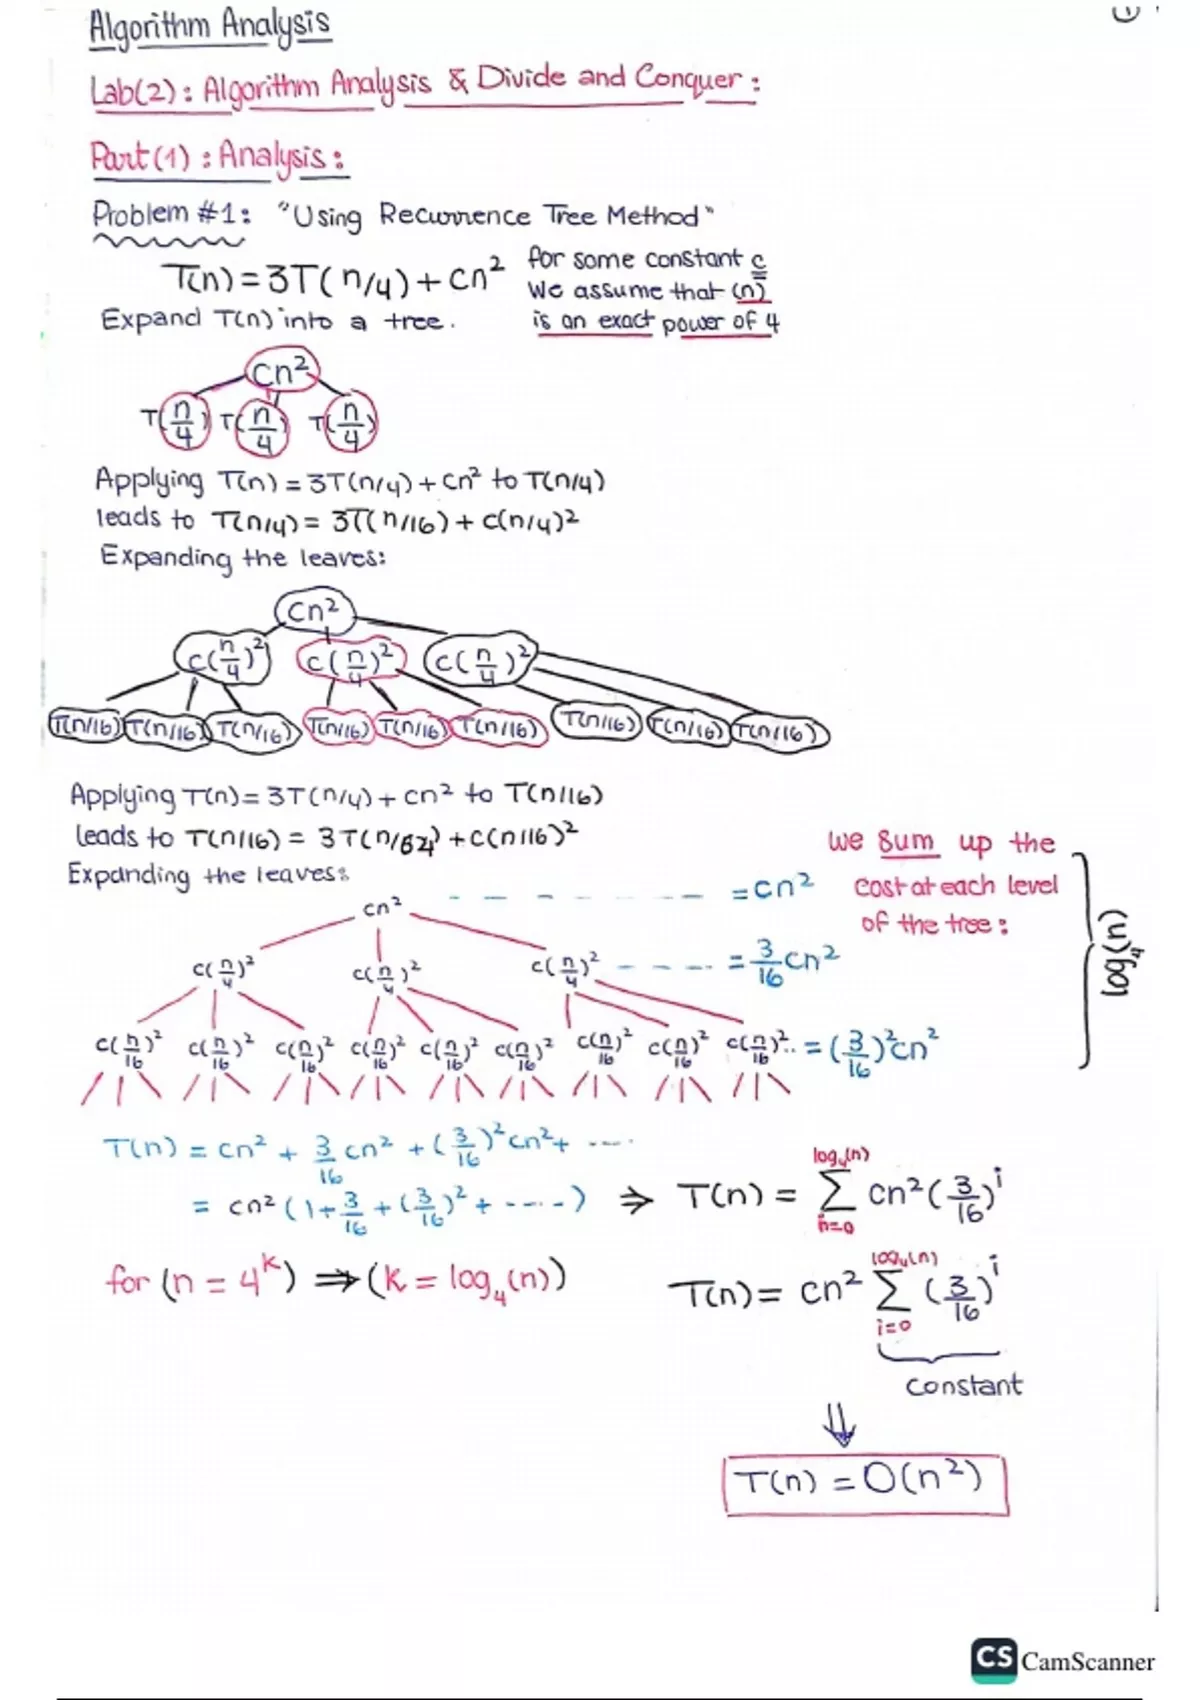 Algorithm Analysis
Lab(2): Algorithm Analysis & Divide and Conquer:
Part(1): Analysis:
Problem #1: "Using Recurrence Tree Method"
T(n) = 3T(n/4) + cn² for some constant c
We assume that (n)
Expand T(n) into a tree. is an exact power of 4
cn²
T(n/4) T(n/4) T(n/4)
Applying T(n) = 3T(n/4) + cn² to T(n/4)
leads to T(n/4) = 3T(n/16) + c(n/4)²
Expanding the leaves:
cn²
c(n/4)² c(n/4)² c(n/4)²
T(n/16) T(n/16) T(n/16) T(n/16) T(n/16) T(n/16) T(n/16) T(n/16) T(n/16)
Applying T(n) = 3T(n/4) + cn² to T(n/16)
leads to T(n/16) = 3T(n/64) + c(n/16)²
Expanding the leaves:
we sum up the
cost at each level
of the tree:
log₄(n)
cn² = cn²
c(n/4)² c(n/4)² c(n/4)² = 3/16 cn²
c(n/16)² c(n/16)² c(n/16)² c(n/16)² c(n/16)² c(n/16)² c(n/16)² c(n/16)² c(n/16)² .. = (3/16)²cn²
T(n) = cn² + 3/16 cn² + (3/16)²cn² + ....
= cn² (1 + 3/16 + (3/16)² + .....) ⇒ T(n) = Σ n=0 log₄(n) cn²(3/16)^i
for (n = 4^k) ⇒ (k = log₄(n)) T(n) = cn² Σ i=0 log₄(n) (3/16)^i
constant
⇓
T(n) = O(n²)
CS CamScanner